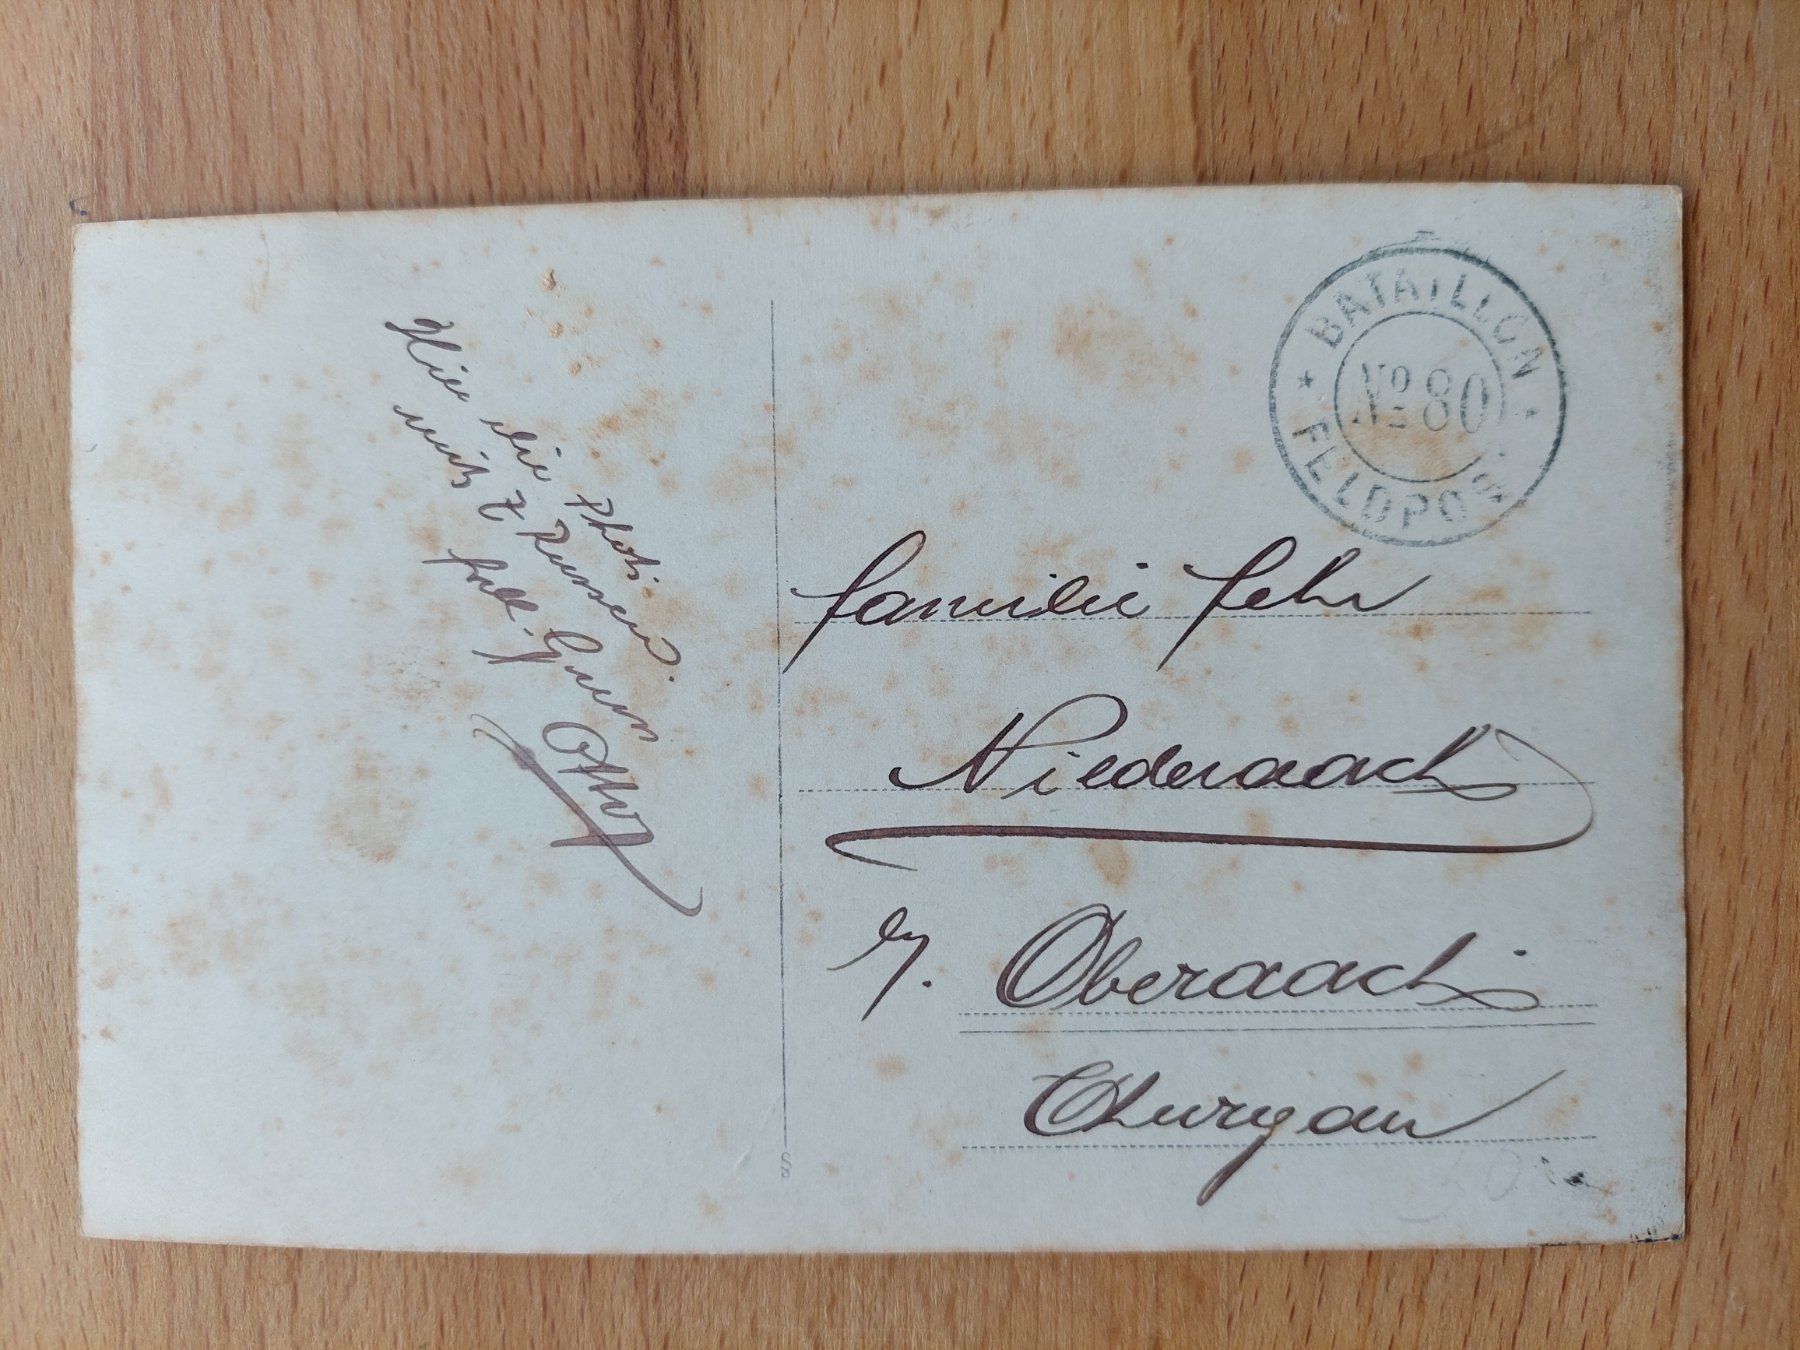 Hier die Photi
mit 7 Russen.
frdl. Gruss
Otto
BATAILLON
No 80
FELDPOST
Familie Fehr
Niederaach
b/. Oberaach
Thurgau